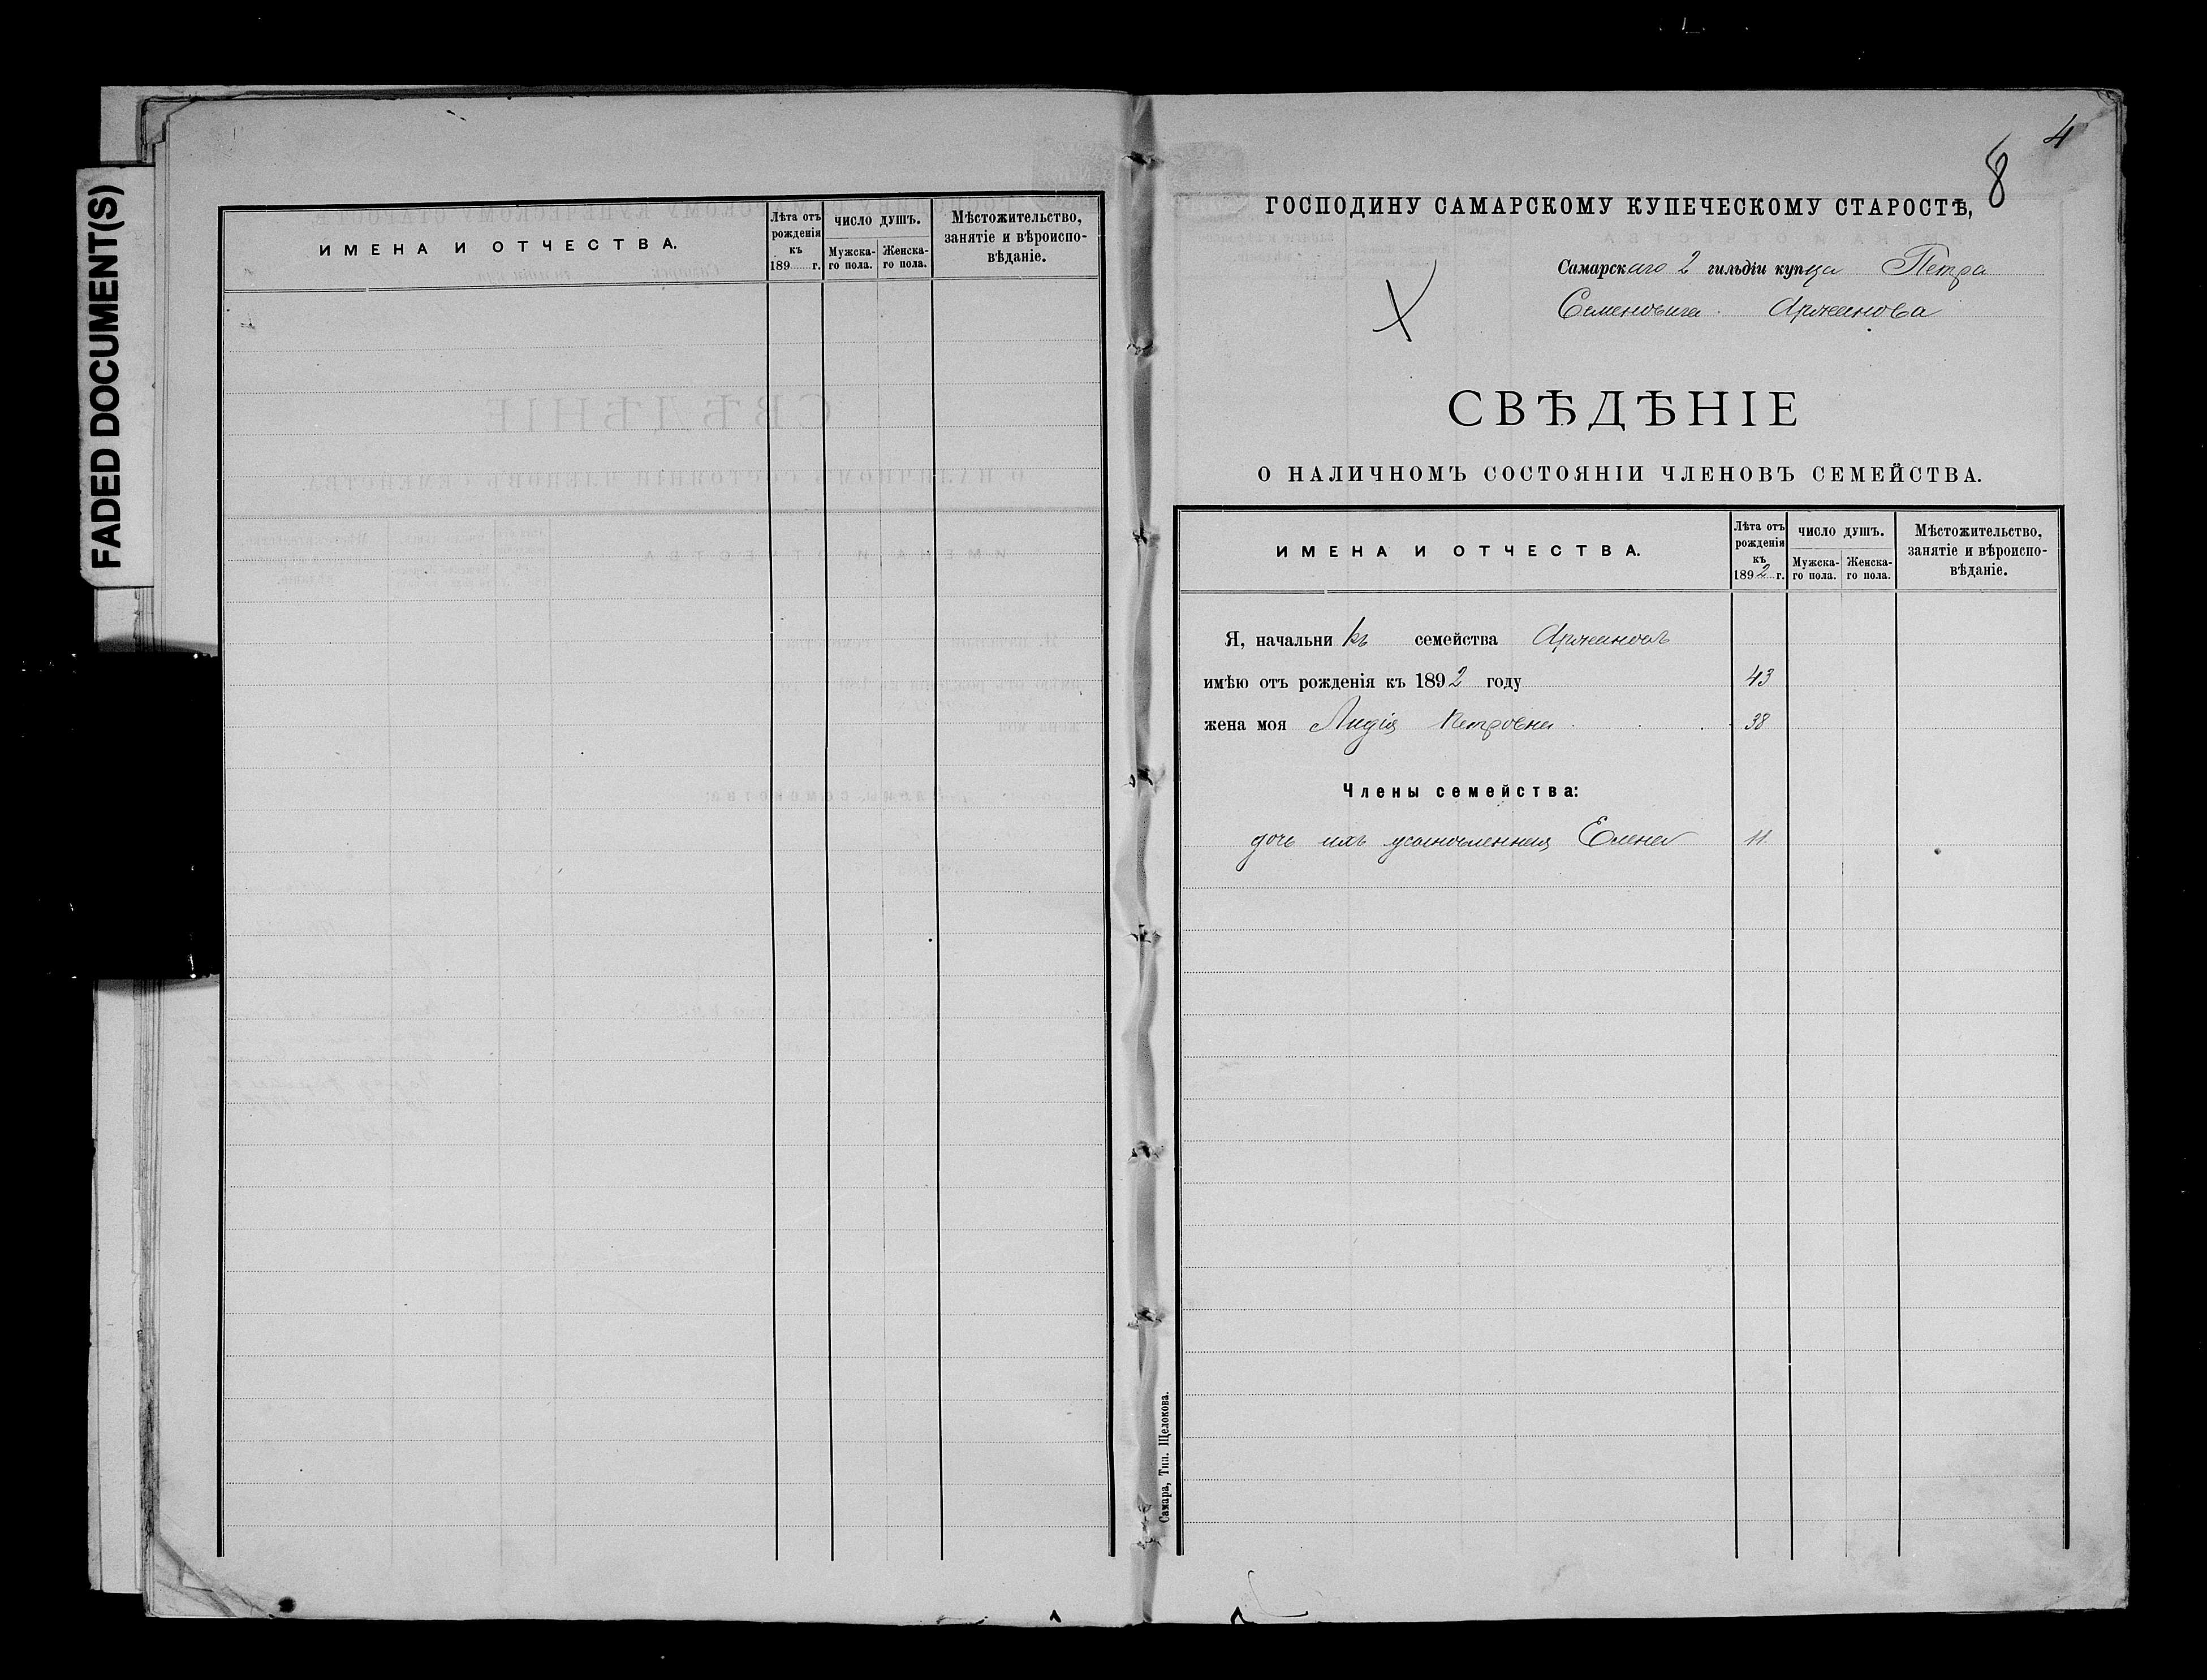 FADED DOCUMENT(S)
ИМЕНА И ОТЧЕСТВА.
Лѣта отъ рожденія къ 189 г.
ЧИСЛО ДУШЪ.
Мужска-го пола.
Женска-го пола.
Мѣстожительство, занятіе и вѣроиспо-вѣданіе.
4
8
ГОСПОДИНУ САМАРСКОМУ КУПЕЧЕСКОМУ СТАРОСТѢ,
Самарскаго 2 гильдіи купца Петра
Семеновича Аржанова
СВѢДѢНІЕ
О НАЛИЧНОМЪ СОСТОЯНІИ ЧЛЕНОВЪ СЕМЕЙСТВА.
ИМЕНА И ОТЧЕСТВА.
Лѣта отъ рожденія къ 1892 г.
ЧИСЛО ДУШЪ.
Мужска-го пола.
Женска-го пола.
Мѣстожительство, занятіе и вѣроиспо-вѣданіе.
Я, начальникъ семейства Аржановъ
имѣю отъ рожденія къ 1892 году 43
жена моя Лидія Петровна 38
Члены семейства:
дочь ихъ усыновленная Елена 11
Самара, Тип. Щелокова.